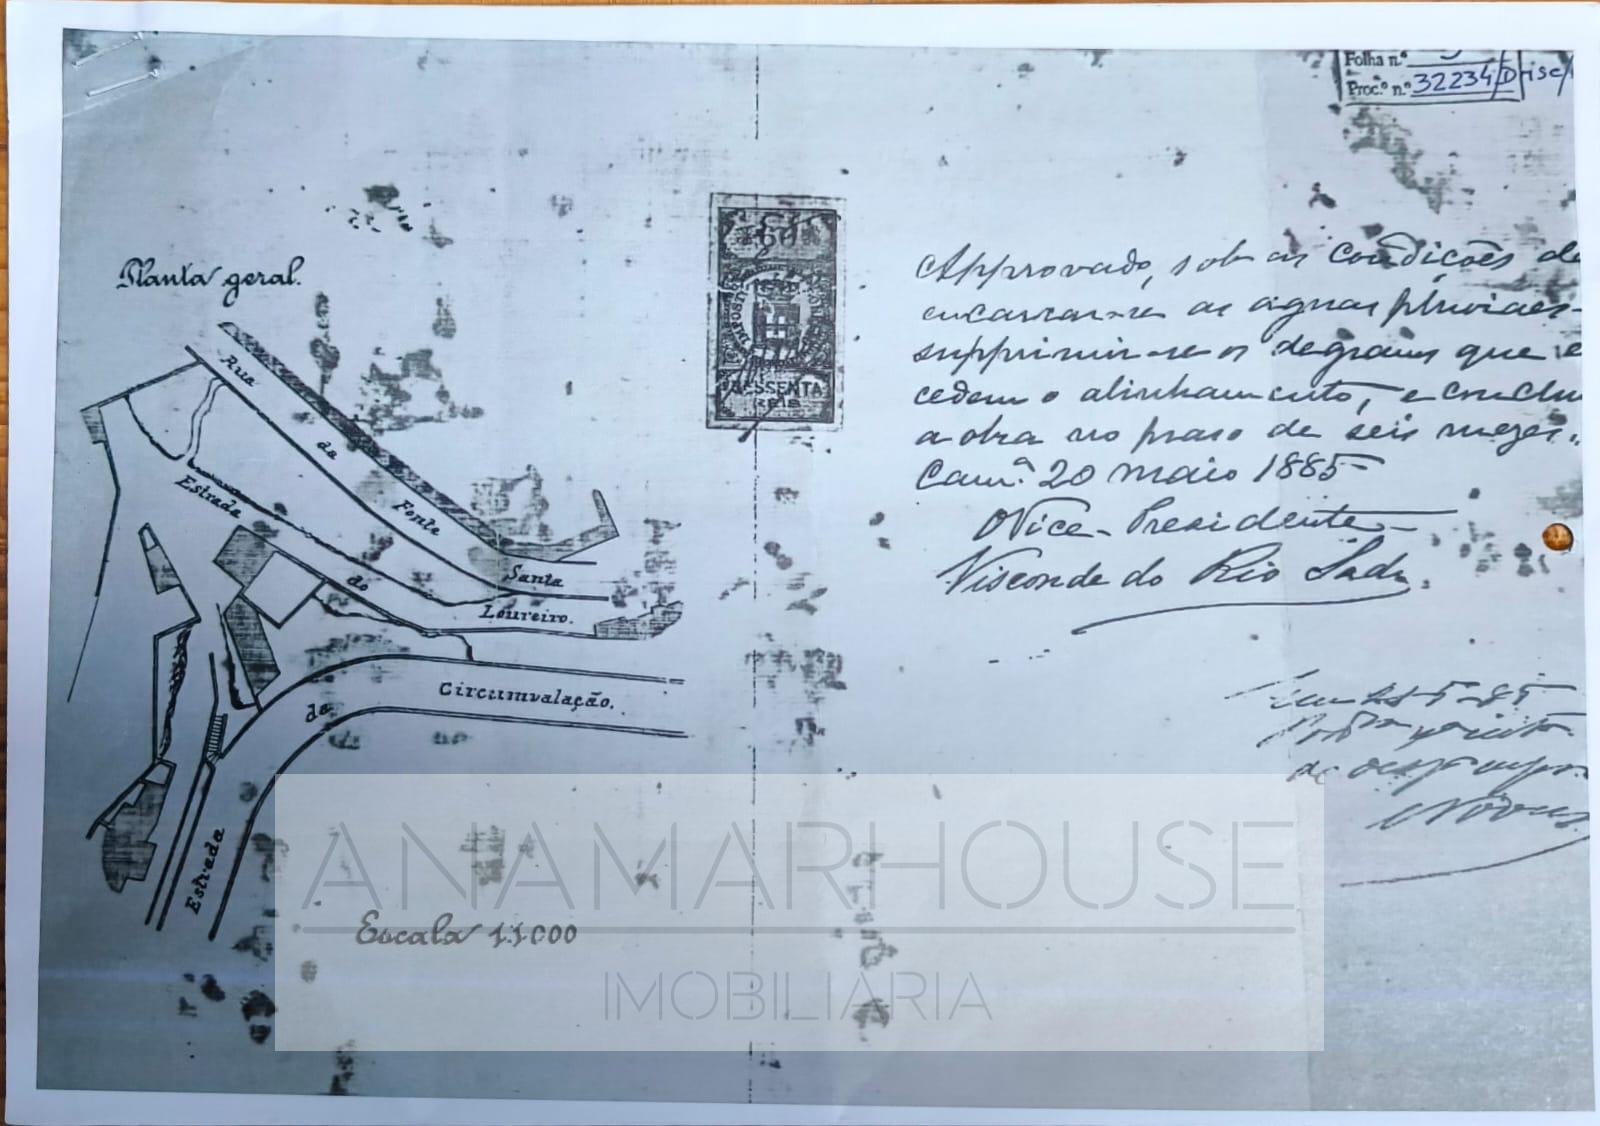 Folha n.º
Proc.º n.º 32234/D
Planta geral.
60
IMPOSTO
SESSENTA
REIS
Approvado, sob as condições de
encanar-se as aguas pluviaes
supprimir-se os degraus que
cedem o alinhamento, e conclu
a obra no praso de seis mezes.
Camª 20 maio 1885
O Vice-Presidente
Visconde do Rio Sado
Rua da Fonte Santa
Estrada do Loureiro.
Estrada da Circumvalação.
Escala 1:1000
ANAMARHOUSE
IMOBILIÁRIA